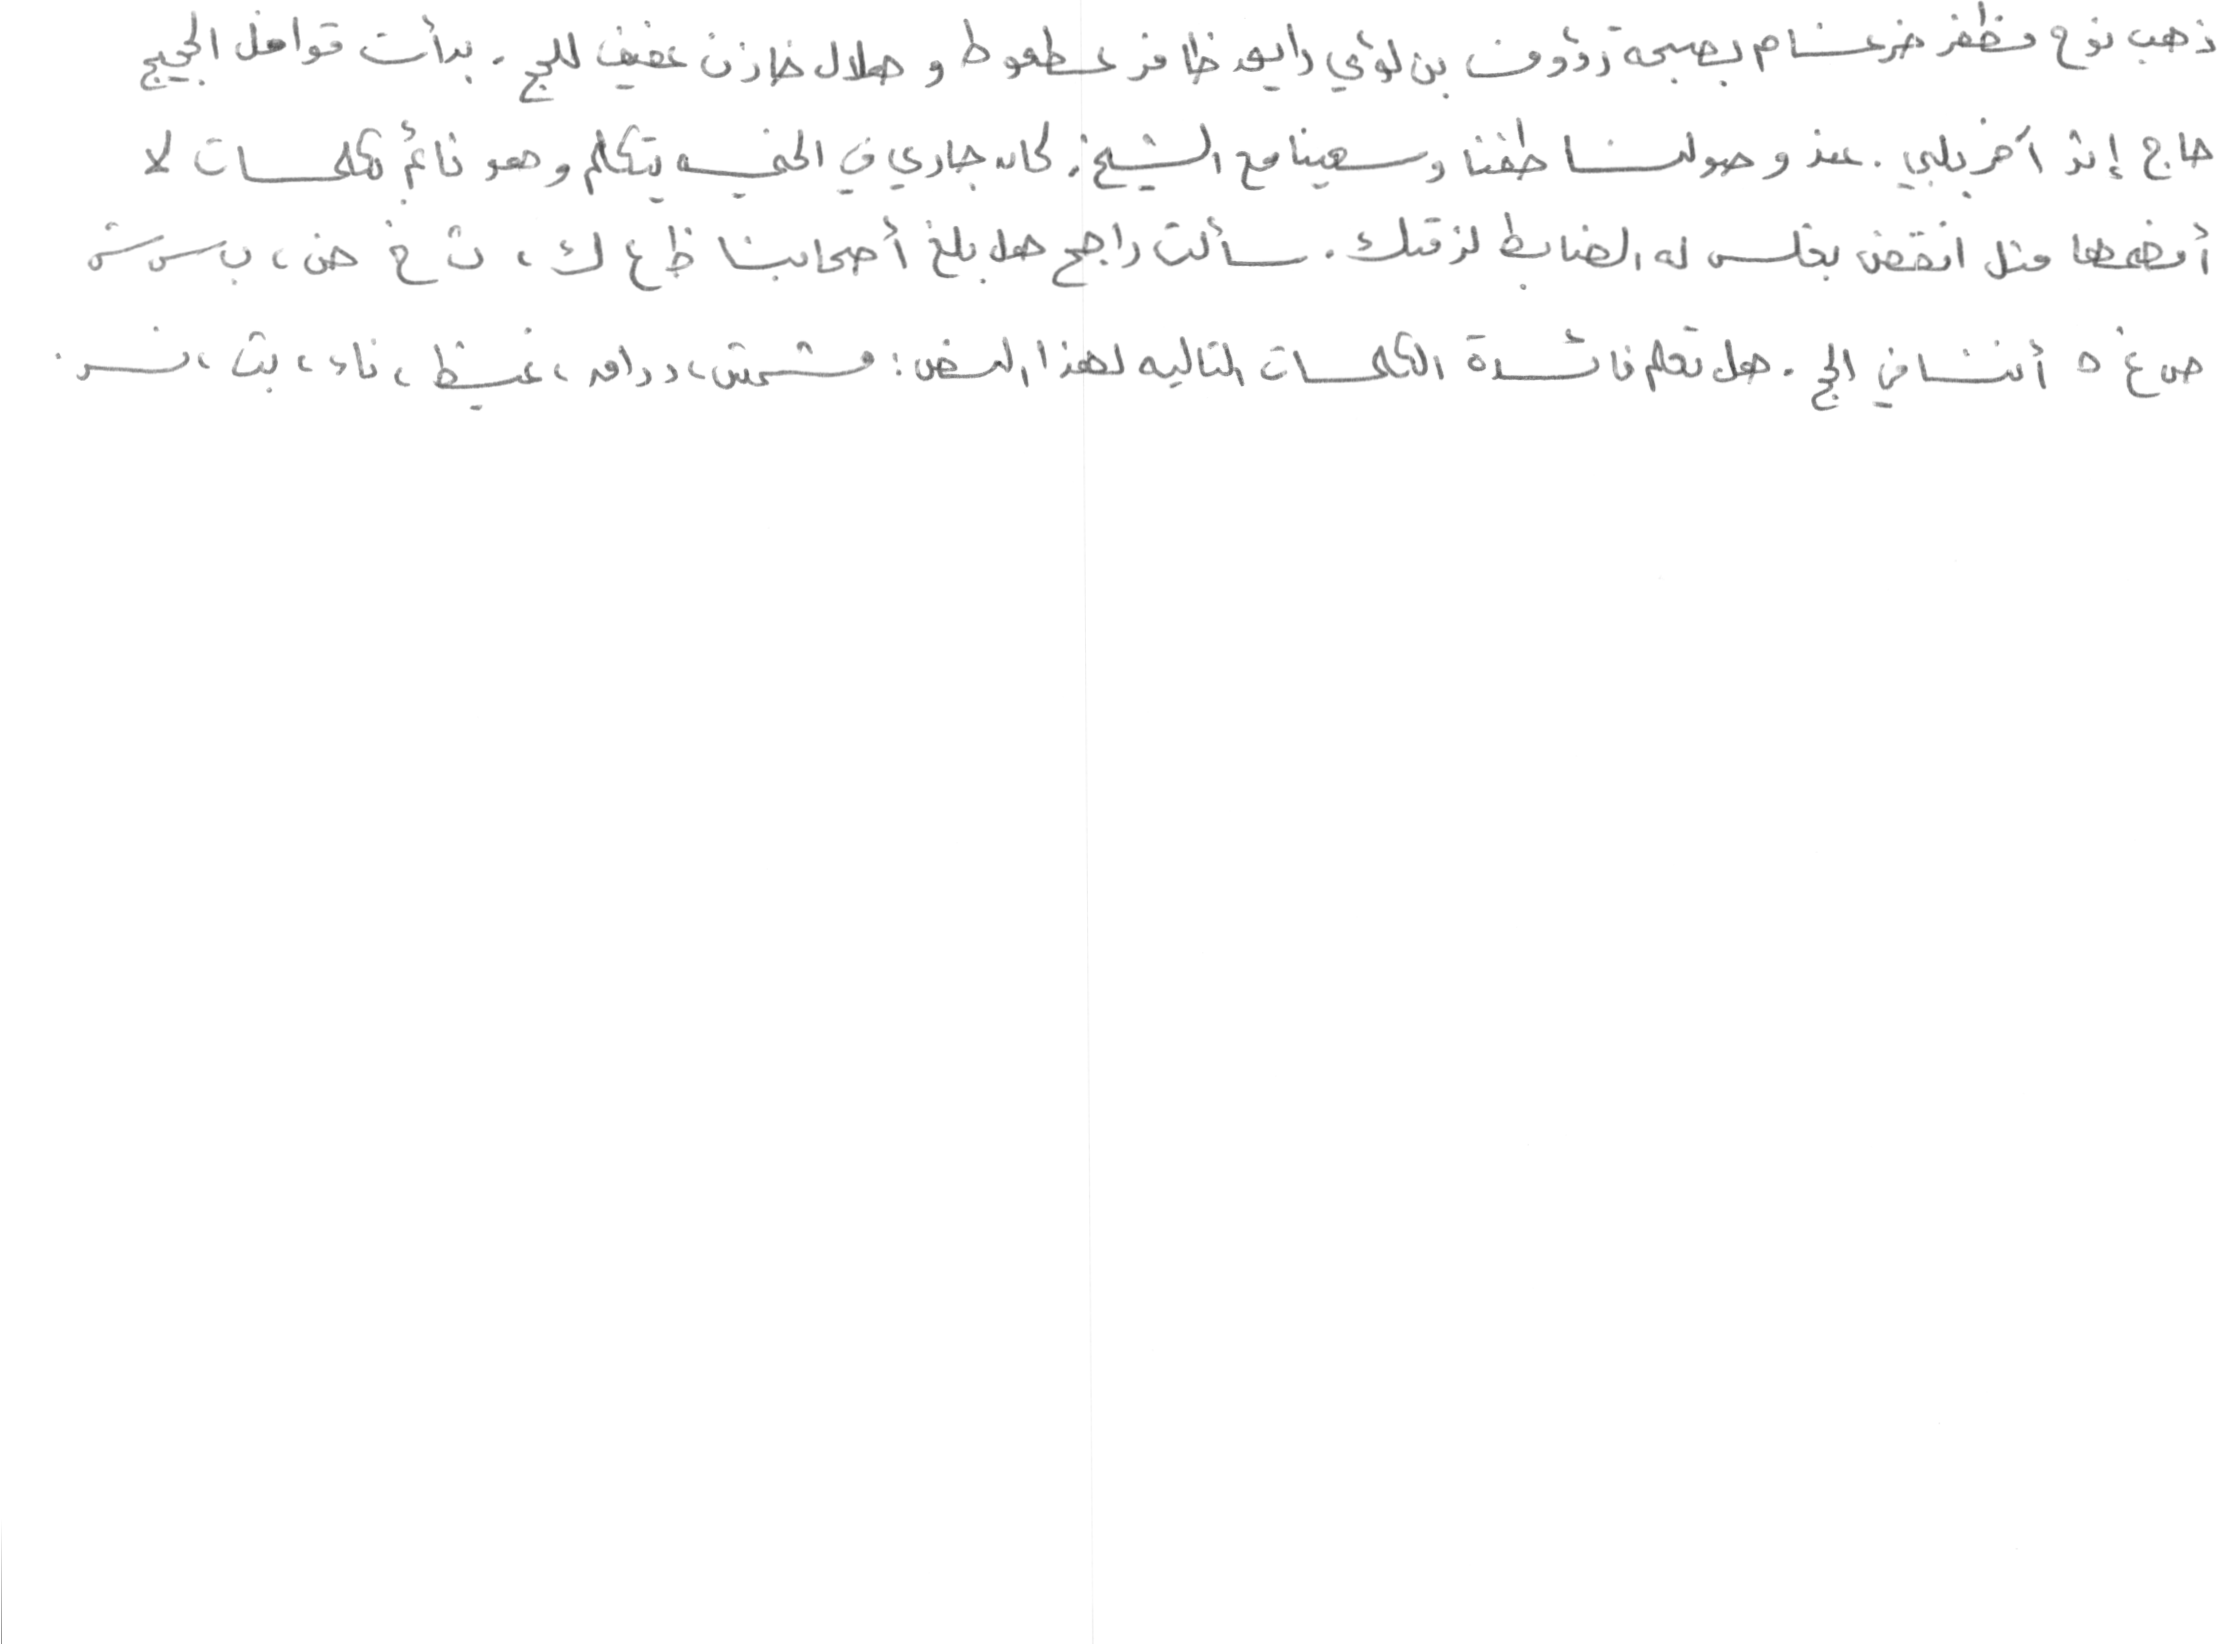 ذهب نوح مظفر ضرغام بصحبة رؤوف بن لؤي رايق ظافر عطعوط و هلال خازن عفيف للحج. بدأت قوافل الحجيج
حاج إثر آخر يلبي. عند وصولنا طفنا وسعينا مع الشيخ. كان جاري في الخيمه يتكلم وهو نائم بكلمات لا
أفهمها مثل انقض بغلس له الضابط لزقتك. سألت راجح هل بلغ أصحابنا ظ ع ك، ث خ ض، ب س ش
ص غ ه أننا في الحج. هل تعلم فائدة الكلمات التاليه لهذا الغرض: مشمش، دراق، غيظ، ناء، بت، نسر.